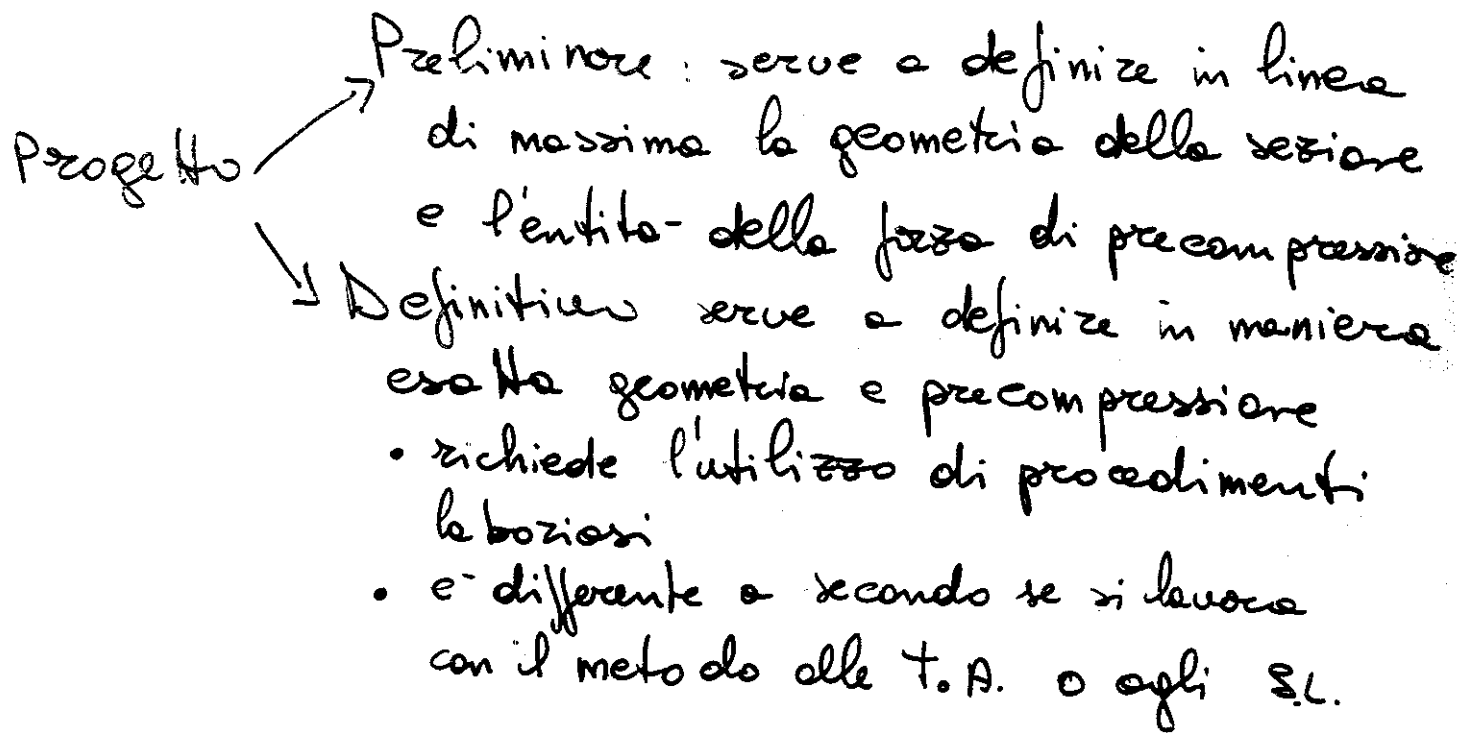 Preliminare : serve a definire in linea
di massima la geometria della sezione
Progetto
e l'entità della forza di precompressione
Definitivo serve a definire in maniera
esatta geometria e precompressione
• richiede l'utilizzo di procedimenti
laboriosi
• è differente a secondo se si lavora
con il metodo alle T.A. o agli S.L.